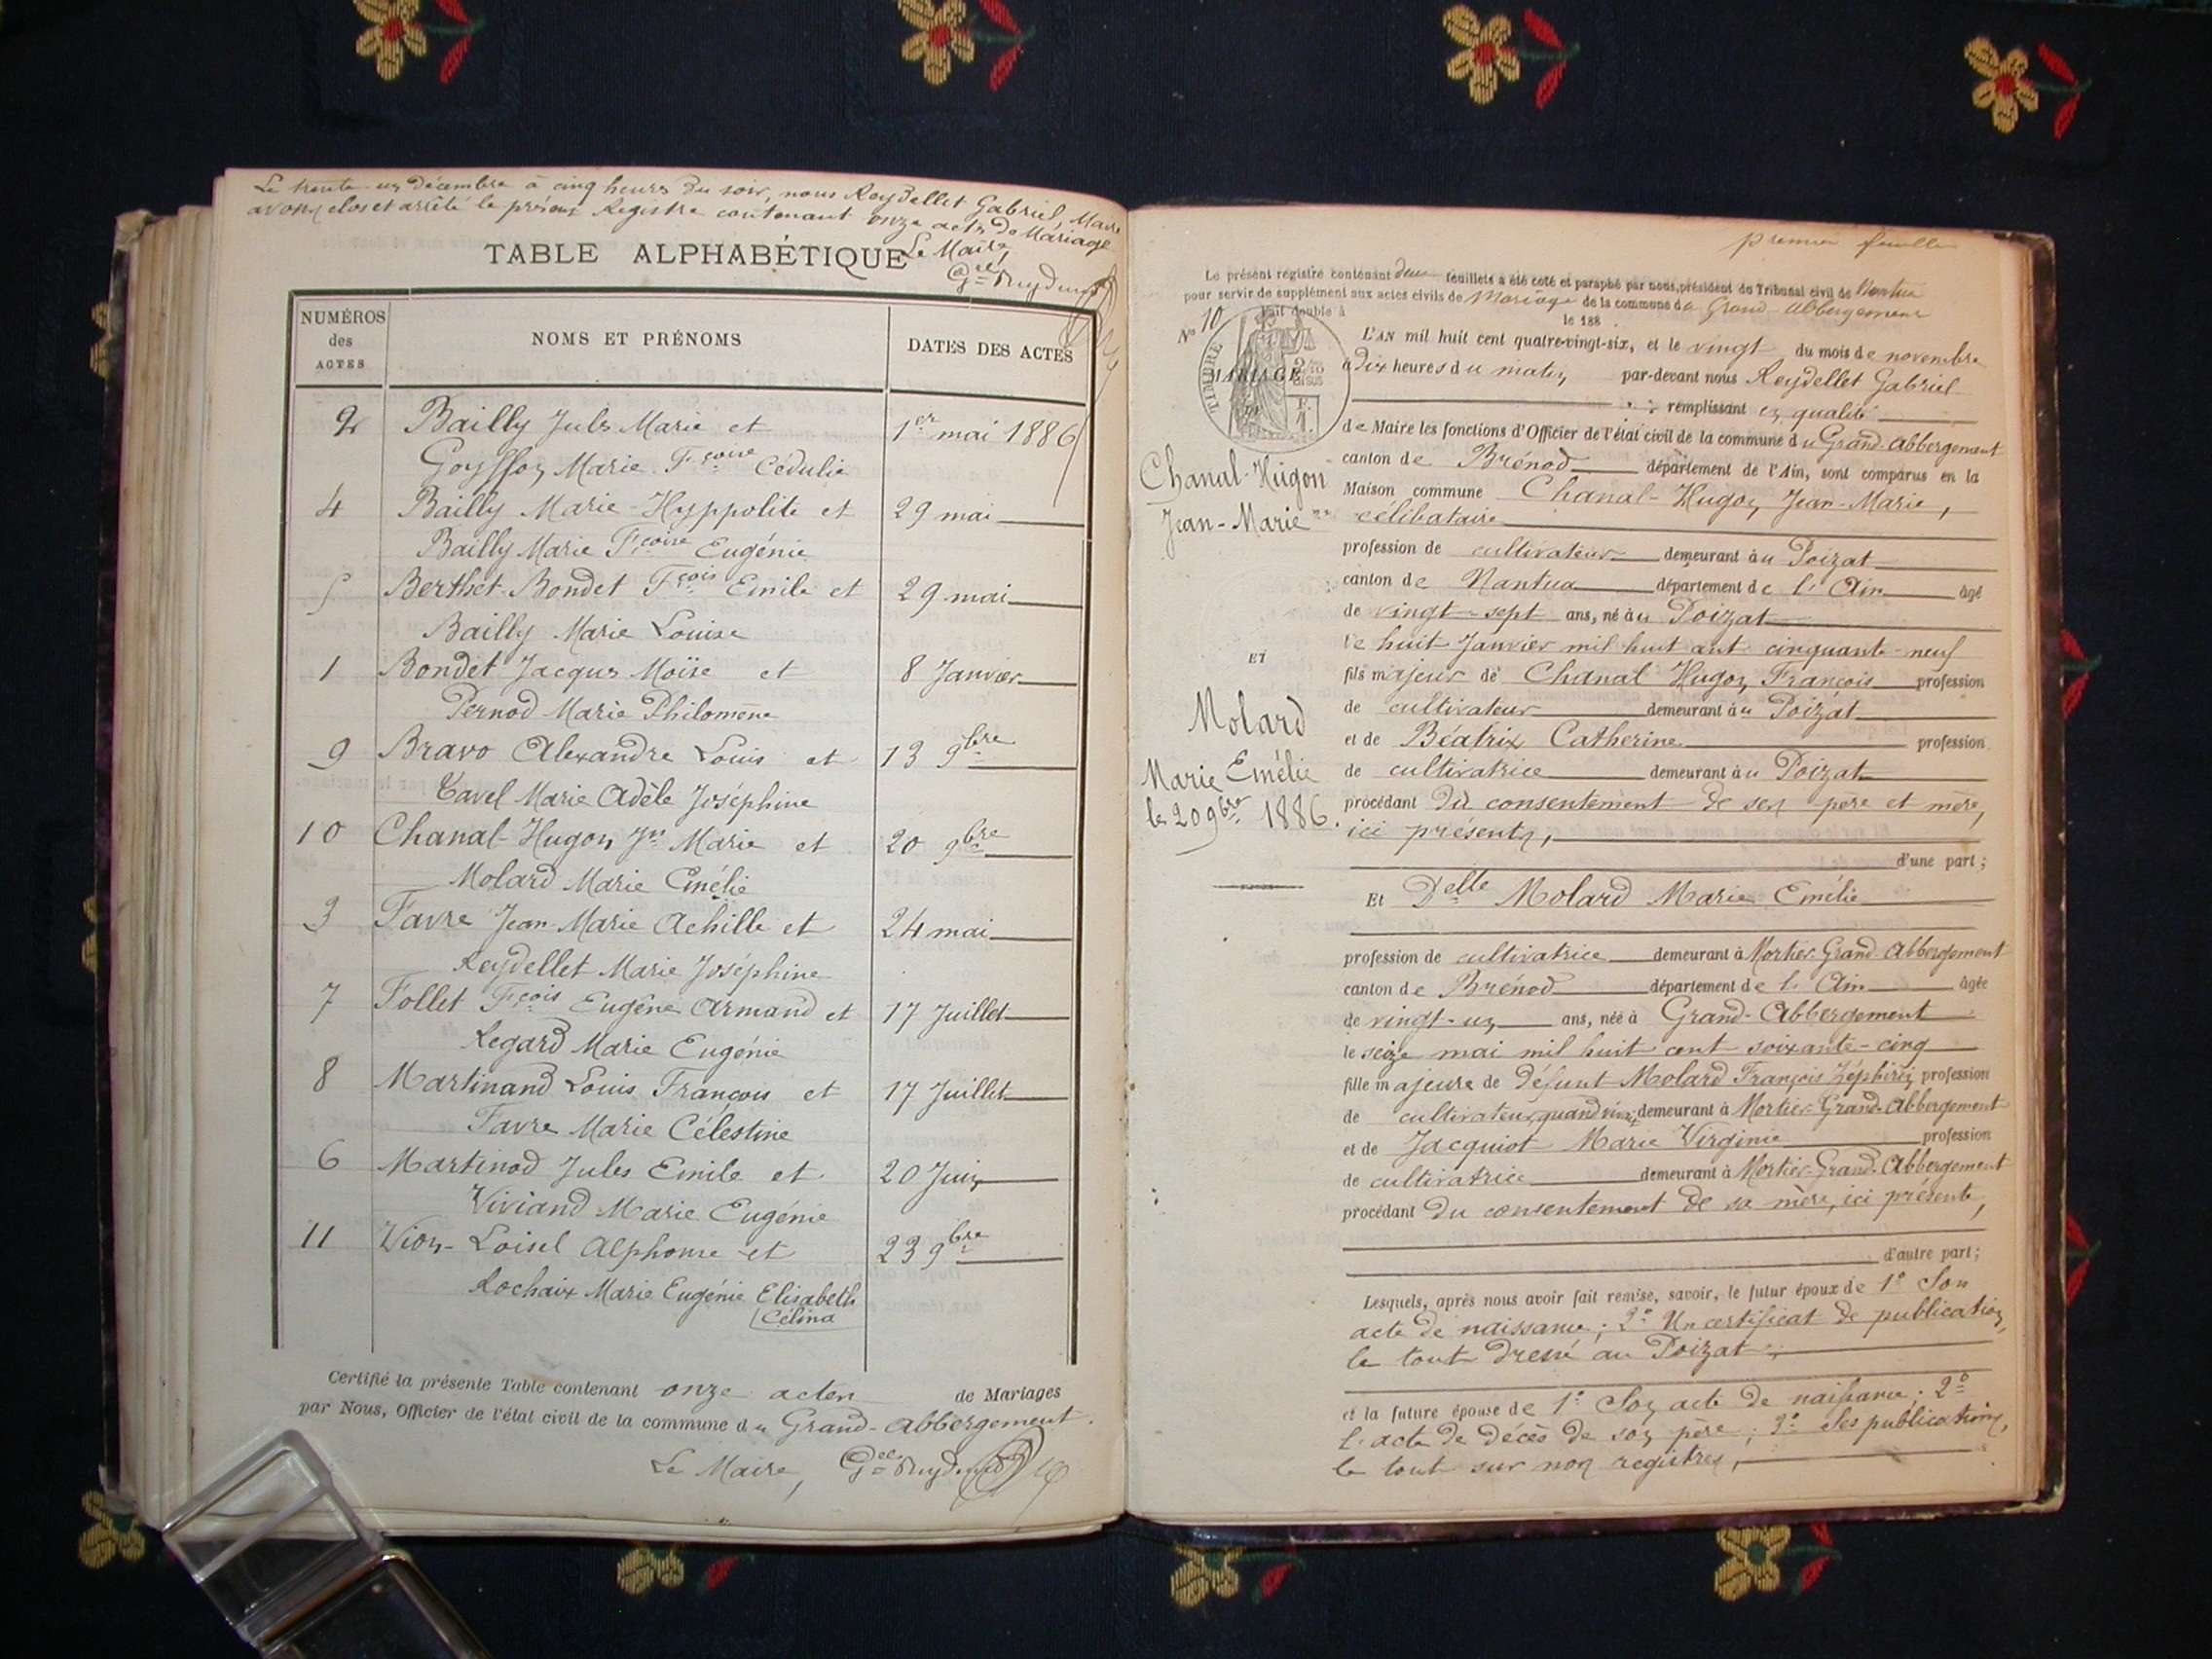 Le trente-un Décembre à cinq heures du soir, nous Reydellet Gabriel, Maire
avons clos et arrêté le présent Registre contenant onze actes de Mariage
Le Maire,
TABLE ALPHABÉTIQUE
NUMÉROS des ACTES
NOMS ET PRÉNOMS
DATES DES ACTES
2 Bailly Jules Marie et 1er mai 1886
Goyffon Marie Fçoise Cédulie
4 Bailly Marie-Hyppolite et 29 mai
Bailly Marie Fçoise Eugénie
5 Berthet-Bondet Fçois Emile et 29 mai
Bailly Marie Louise
1 Bondet Jacques Moïse et 8 Janvier
Pernod Marie Philomène
9 Bravo Alexandre Louis et 13 9bre
Tavel Marie Adèle Joséphine
10 Chanal-Hugon Jn Marie et 20 9bre
Molard Marie Emélie
3 Favre Jean-Marie Achille et 24 mai
Reydellet Marie Joséphine
7 Follet Fçois Eugène Armand et 17 Juillet
Regard Marie Eugénie
8 Martinand Louis François et 17 Juillet
Favre Marie Célestine
6 Martinod Jules Emile et 20 Juin
Viviand Marie Eugénie
11 Vion-Loisel Alphonse et 23 9bre
Rochaix Marie Eugénie Elisabeth
Célina
Certifié la présente Table contenant onze actes de Mariages
par Nous, Officier de l'état civil de la commune du Grand-Abbergement.
Le Maire,
premier feuillet
Le présent registre contenant deux feuillets a été coté et paraphé par nous, président du Tribunal civil de Nantua
pour servir de supplément aux actes civils de Mariage de la commune de Grand-Abbergement
Fait double à le 188 .
No 10
TIMBRE
MARIAGE
L'AN mil huit cent quatre-vingt-six, et le vingt du mois de novembre
à dix heures du matin, par-devant nous Reydellet Gabriel
remplissant en qualité
de Maire les fonctions d'Officier de l'état civil de la commune du Grand-Abbergement
canton de Brénod département de l'Ain, sont comparus en la
Maison commune Chanal-Hugon Jean-Marie,
célibataire
Chanal-Hugon
Jean-Marie
ET
Molard
Marie Emélie
le 20 9bre 1886.
profession de cultivateur demeurant au Poizat
canton de Nantua département de l'Ain âgé
de vingt-sept ans, né au Poizat
le huit Janvier mil huit cent cinquante-neuf
fils majeur de Chanal Hugon François profession
de cultivateur demeurant au Poizat
et de Béatrix Catherine profession
de cultivatrice demeurant au Poizat
procédant du consentement de ses père et mère,
ici présents,
d'une part ;
Et Delle Molard Marie Emélie
profession de cultivatrice demeurant à Mortier Grand-Abbergement
canton de Brénod département de l'Ain âgée
de vingt-un ans, née à Grand-Abbergement
le seize mai mil huit cent soixante-cinq
fille majeure de défunt Molard François Zéphirin profession
de cultivateur, quand vivait demeurant à Mortier Grand-Abbergement
et de Jacquiot Marie Virginie profession
de cultivatrice demeurant à Mortier-Grand-Abbergement
procédant du consentement de sa mère, ici présente,
d'autre part;
Lesquels, après nous avoir fait remise, savoir, le futur époux de 1° Son
acte de naissance ; 2° Un certificat de publication,
le tout dressé au Poizat ;
et la future épouse de 1° Son acte de naissance ; 2°
L'acte de décès de son père ; 3° Ses publications,
le tout sur nos registres,